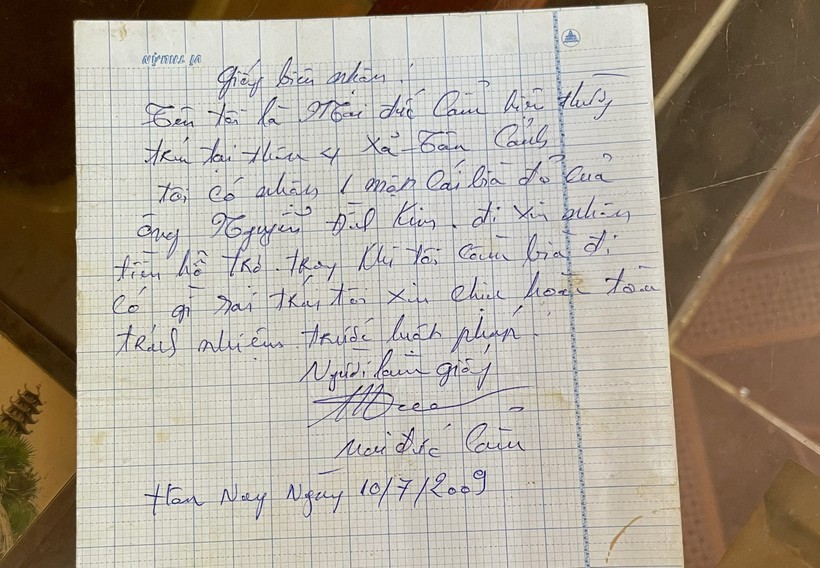 Giấy biên nhân!
Tên tôi là Mai đức Cảm hiện thường
trú tại thôn 4 xã Tân Cảnh
tôi có nhận 1 một cái bìa đỏ của
ông Nguyễn Đình Kim. đi xin nhân
tiền hỗ trợ. trog khi tôi cầm bìa đi
có gì sai trái tôi xin chịu hoàn toàn
trách nhiệm trước luật pháp.
Người làm giấy
Mai đức Cảm
Hôm Nay Ngày 10/7/2009